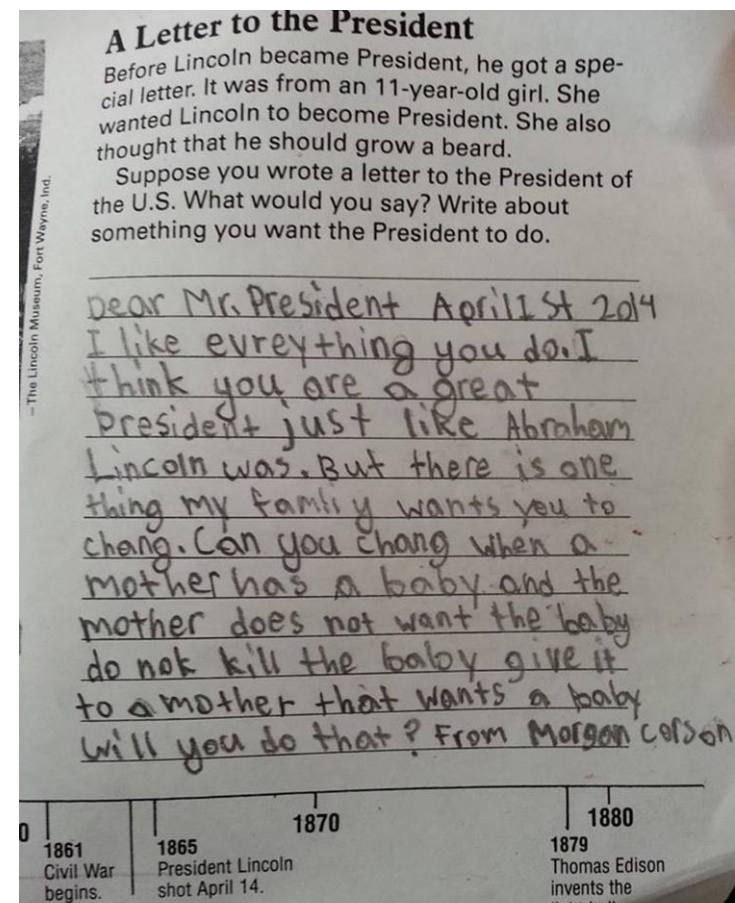 A Letter to the President
Before Lincoln became President, he got a spe-
cial letter. It was from an 11-year-old girl. She
wanted Lincoln to become President. She also
thought that he should grow a beard.
Suppose you wrote a letter to the President of
the U.S. What would you say? Write about
something you want the President to do.
—The Lincoln Museum, Fort Wayne, Ind.
Dear Mr. President April 1st 2014
I like evreything you do. I
think you are a great
president just like Abraham
Lincoln was. But there is one
thing my famliy wants you to
chang. Can you chang when a
mother has a baby and the
mother does not want the baby
do not kill the baby give it
to a mother that wants a baby
will you do that? From Morgan Corson
0
1870
1880
1861
Civil War
begins.
1865
President Lincoln
shot April 14.
1879
Thomas Edison
invents the